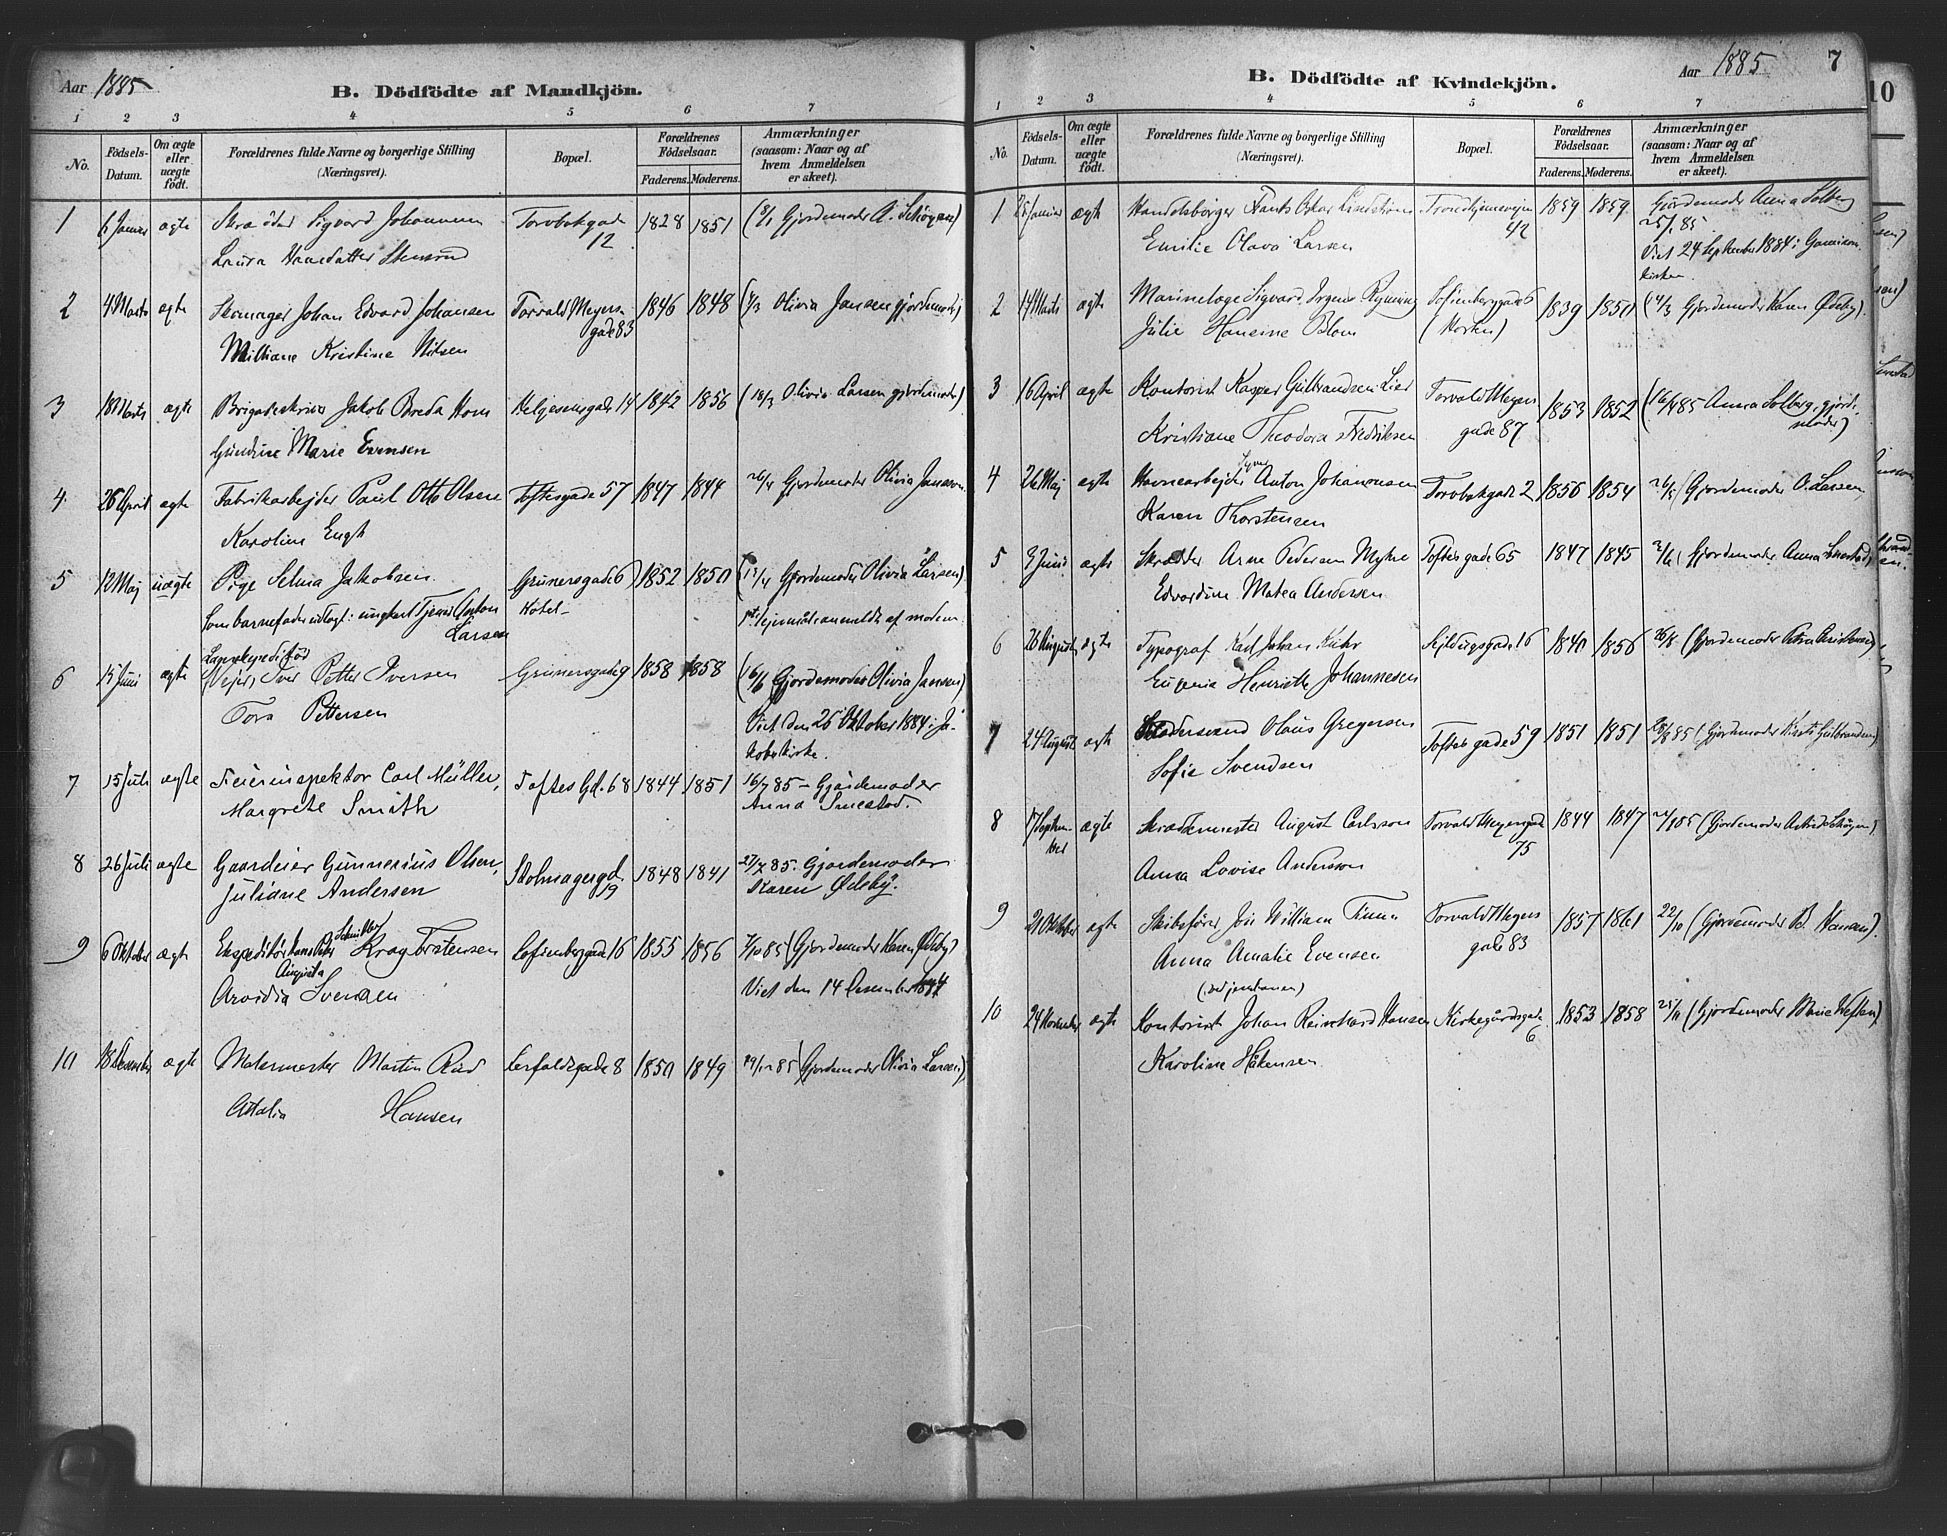 Aar 1885
B. Dödfödte af Mandkjön.
1 2 3 4 5 6 7
No. Födsels-Datum. Om ægte eller uægte födt. Forældrenes fulde Navne og borgerlige Stilling (Næringsvei). Bopæl. Forældrenes Födselsaar. Faderens. Moderens. Anmærkninger (saasom: Naar og af hvem Anmeldelsen er skeet).
1 6 Januar ægte Skræder Sigvard Johannesen Torvbakgade 1828 1851 (8/1 Gjordemoder A. Schøyen)
Laura Hansdatter Stensrud 12
2 4 Marts ægte Skomager Johan Edvard Johansen Torvald Meyers- 1846 1848 (4/3 Olivia Jansen gjordemoder)
Milliane Kristine Nilsen gade 83
3 18 Marts ægte Brigadeskriver Jakob Breda Horn Helgesensgade 14 1842 1856 (18/3 Olivia Larsen gjordemoder)
Gundine Marie Evensen
4 26 April ægte Fabrikarbejder Paul Otto Olsen Toftesgade 57 1847 1844 26/4 Gjordemoder Olivia Jansen
Karoline Engh
5 12 Maj uægte Pige Selma Jakobsen Grünersgade 6 1852 1850 Gjordemoder Olivia Larsen)
Som barnefader udlagt: ungkarl Tjener Anton Hotel
Larsen lejermålsanmeldt af modern
6 15 Juni ægte Vejer, Iver Petter Iversen Grünersgade 9 1858 1858 (16/6 Gjordemoder Olivia Jansen)
Tora Pettersen Viet den 26 Oktober 1884 i Ja-
kobs Kirke.
7 15 Juli ægte Feierinspektor Carl Müller, Toftes Gd. 68 1844 1851 16/7 85 – Gjordemoder
Margrete Smith Anna Smestad.
8 26 Juli ægte Gaardeier Gunnerius Olsen, Skolmagergd. 1848 1841 27/7 85. Gjordemoder
Juliane Andersen 19 Karen Ødeby.
Schmidler
9 6 Oktober ægte Ekspeditör Hans Peter Krag Torstensen Sofienberggade 16 1855 1856 7/10 85 (Gjordemoder Karen Ødeby)
Augusta
Arvidia Svensen Viet den 14 Desember 1884
10 18 Desember ægte Malermester Martin Rud Herfaldsgade 8 1850 1849 19/12 85 (Gjordemoder Olivia Larsen)
Attalia Hansen
Aar 1885 7
B. Dödfödte af Kvindekjön.
1 2 3 4 5 6 7
No. Födsels-Datum. Om ægte eller uægte födt. Forældrenes fulde Navne og borgerlige Stilling (Næringsvei). Bopæl. Forældrenes Födselsaar. Faderens. Moderens. Anmærkninger (saasom: Naar og af hvem Anmeldelsen er skeet).
1 25 Januar ægte Handelsborger Frants Oskar Lindström Trondhjemsvejen 1859 1859 Gjordemoder Anna Solberg
Emilie Olava Larsen 42 25/1 85.
Viet 24 September 1884 i Garnisons
kirken
2 14 Marts ægte Marineloge Sigvard Irgens Rynning Sofienberggade 6 1839 1850 Gjordemoder Karen Ødeby).
Julie Hansine Blom (Horten)
3 16 April ægte Kontorist Kasper Gulbrandsen Lier Torvald Meyers 1853 1852 (16/4 85 Anna Solberg, gjorde-
Kristiane Theodora Fredriksen gade 87 moder)
4 26 Maj ægte Havnearbejder Anton Johannesen Torvbakgade 2 1856 1854 26/5 (Gjordemoder O. Larsen
Karen Thorstensen
5 2 Juni ægte Skrædder Arne Pedersen Myhre Toftesgade 65 1847 1845 2/6 (Gjordemoder Anna Smestad)
Edvardine Matea Andersen
6 26 August ægte Typograf Karl Johan Sejldugsgade 16 1840 1856 26/8 (Gjordemoder Petra Christensen)
Eugenia Henriette Johannesen
7 24 August ægte Skrædersvend Olaus Gregersen Toftes gade 59 1851 1851 (Gjordemoder Kirsti Gulbrandsen)
Sofie Svendsen
8 17 September ægte Skræddermester August Carlsson Torvald Meyersgade 1844 1847 (Gjordemoder Astrid Schøyen)
Anna Lovise Andersson 75
9 21 Oktober ægte Skibsfører Jon William Timm Torvald Meyers 1857 1861 22/10 (Gjordemoder B. Hansen).
Anna Amalie Evensen gade 83
10 24 November ægte Kontorist Johan Reinhard Hansen Kirkegårdsgade 1853 1858 25/11 (Gjordemoder Marie Weften)
Karoline Håkensen 6
10